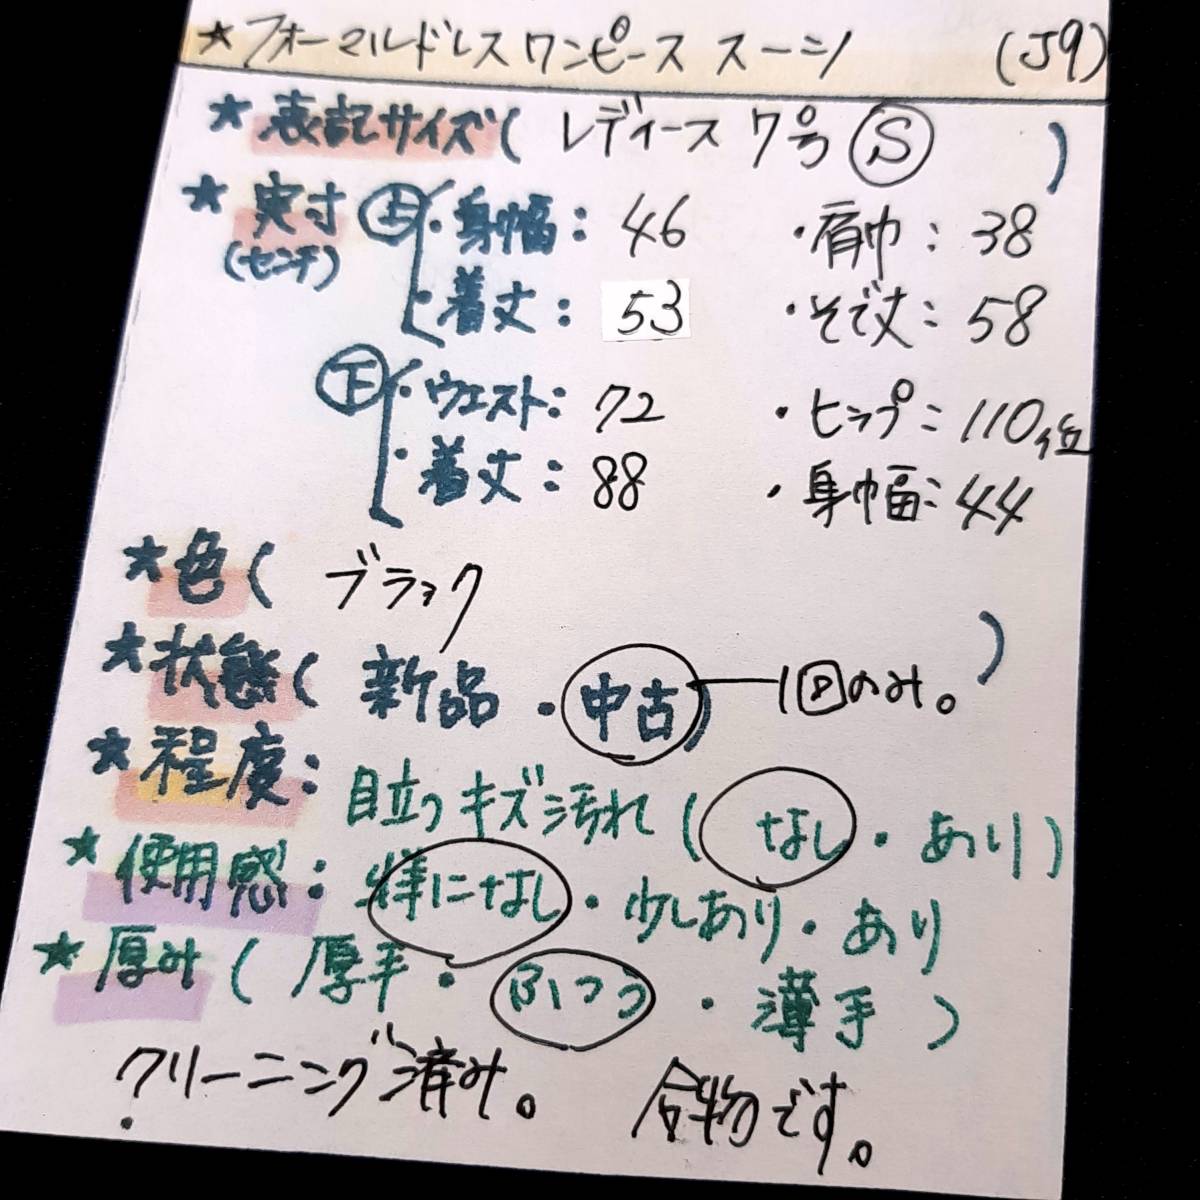 ★フォーマルドレスワンピース スーツ (J9)
★表記サイズ( レディース 7号 Ⓢ )
★実寸 ㊤ ・身幅: 46 ・肩巾: 38
(センチ) ・着丈: 53 ・そで丈: 58
㊦ ・ウエスト: 72 ・ヒップ: 110位
・着丈: 88 ・身幅: 44
★色( ブラック )
★状態( 新品 ・ 中古) 1回のみ。
★程度: 目立つキズ汚れ( なし ・ あり)
★使用感: 特になし ・ 少しあり ・ あり
★厚み( 厚手 ・ ふつう ・ 薄手 )
クリーニング済み。 合物です。